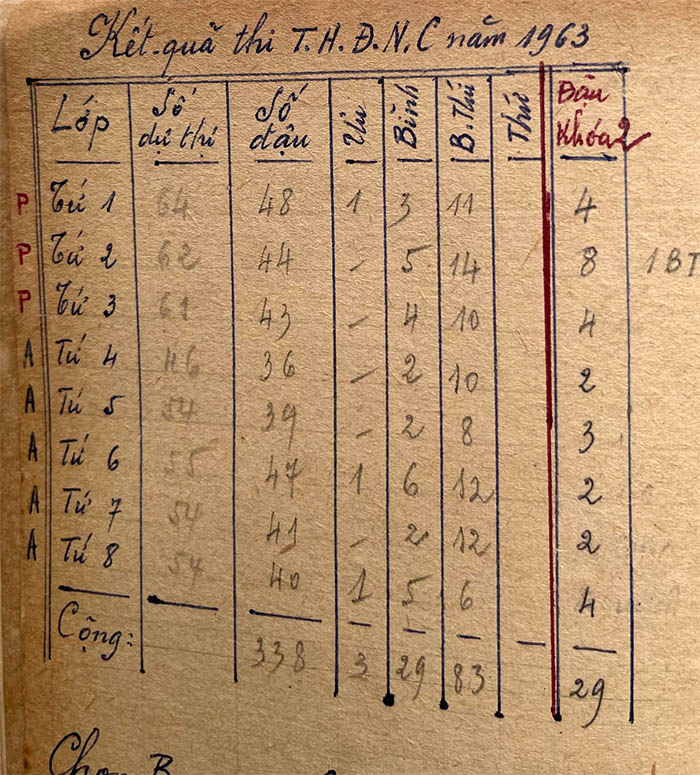 Kết-quả thi T.H.Đ.N.C năm 1963
Lớp Số dự thi Số đậu Ưu Bình B.Thứ Thứ Đậu Khóa 2
P Tứ 1 64 48 1 3 11 4
P Tứ 2 62 44 - 5 14 8 1 BT
P Tứ 3 61 43 - 4 10 4
A Tứ 4 46 36 - 2 10 2
A Tứ 5 54 39 - 2 8 3
A Tứ 6 55 47 1 6 12 2
A Tứ 7 54 41 - 2 12 2
A Tứ 8 54 40 1 5 6 4
Cộng: 338 3 29 83 - 29